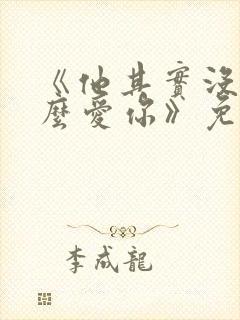 《他其實沒
麼愛你》免
李成龍